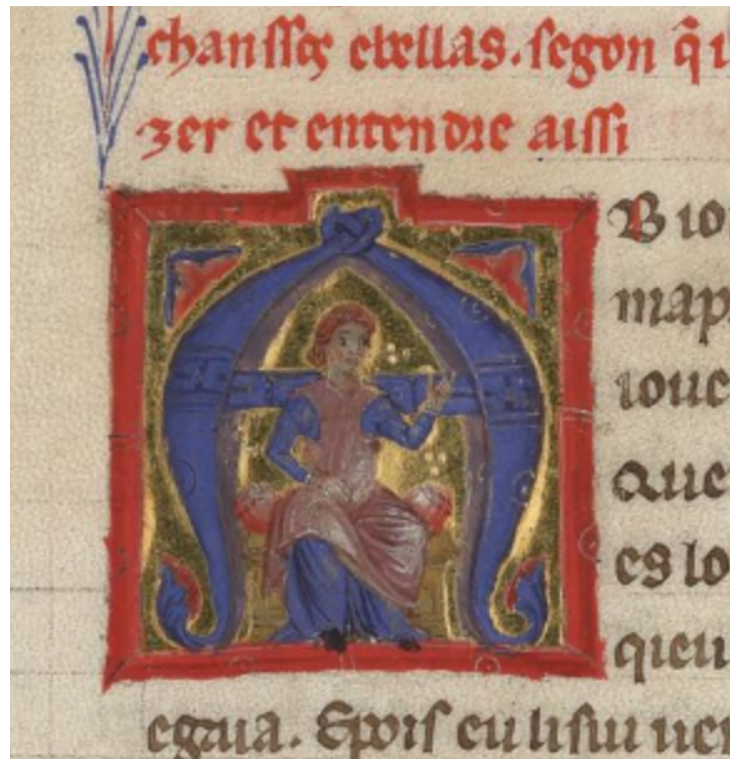 chanssos et ellas. segon q̃ i
zer et entendre aissi
A
B ioi
map
ioue
Que
es lo
qieu
egaua. E pois eu li sui uen